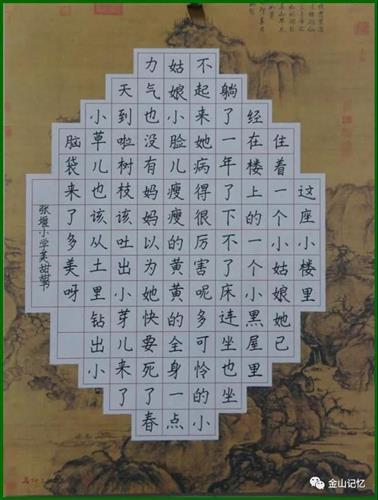 这座小楼里
住着一个小姑娘她已
经在楼上的一个小黑屋里
躺了一年了下不了床连坐也坐
不起来她病得很厉害呢多可怜的小
姑娘小脸儿瘦瘦的黄黄的全身一点
力气也没有妈妈以为她快要死了春
天到啦树枝该吐出小芽儿来了
小草儿也该从土里钻出小
脑袋来了多美呀
张堰小学吴甜甜书
金山记忆